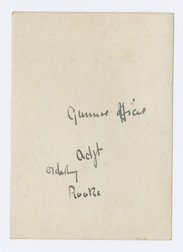 Gunner Officer
Adjt
Orderly
Rooke